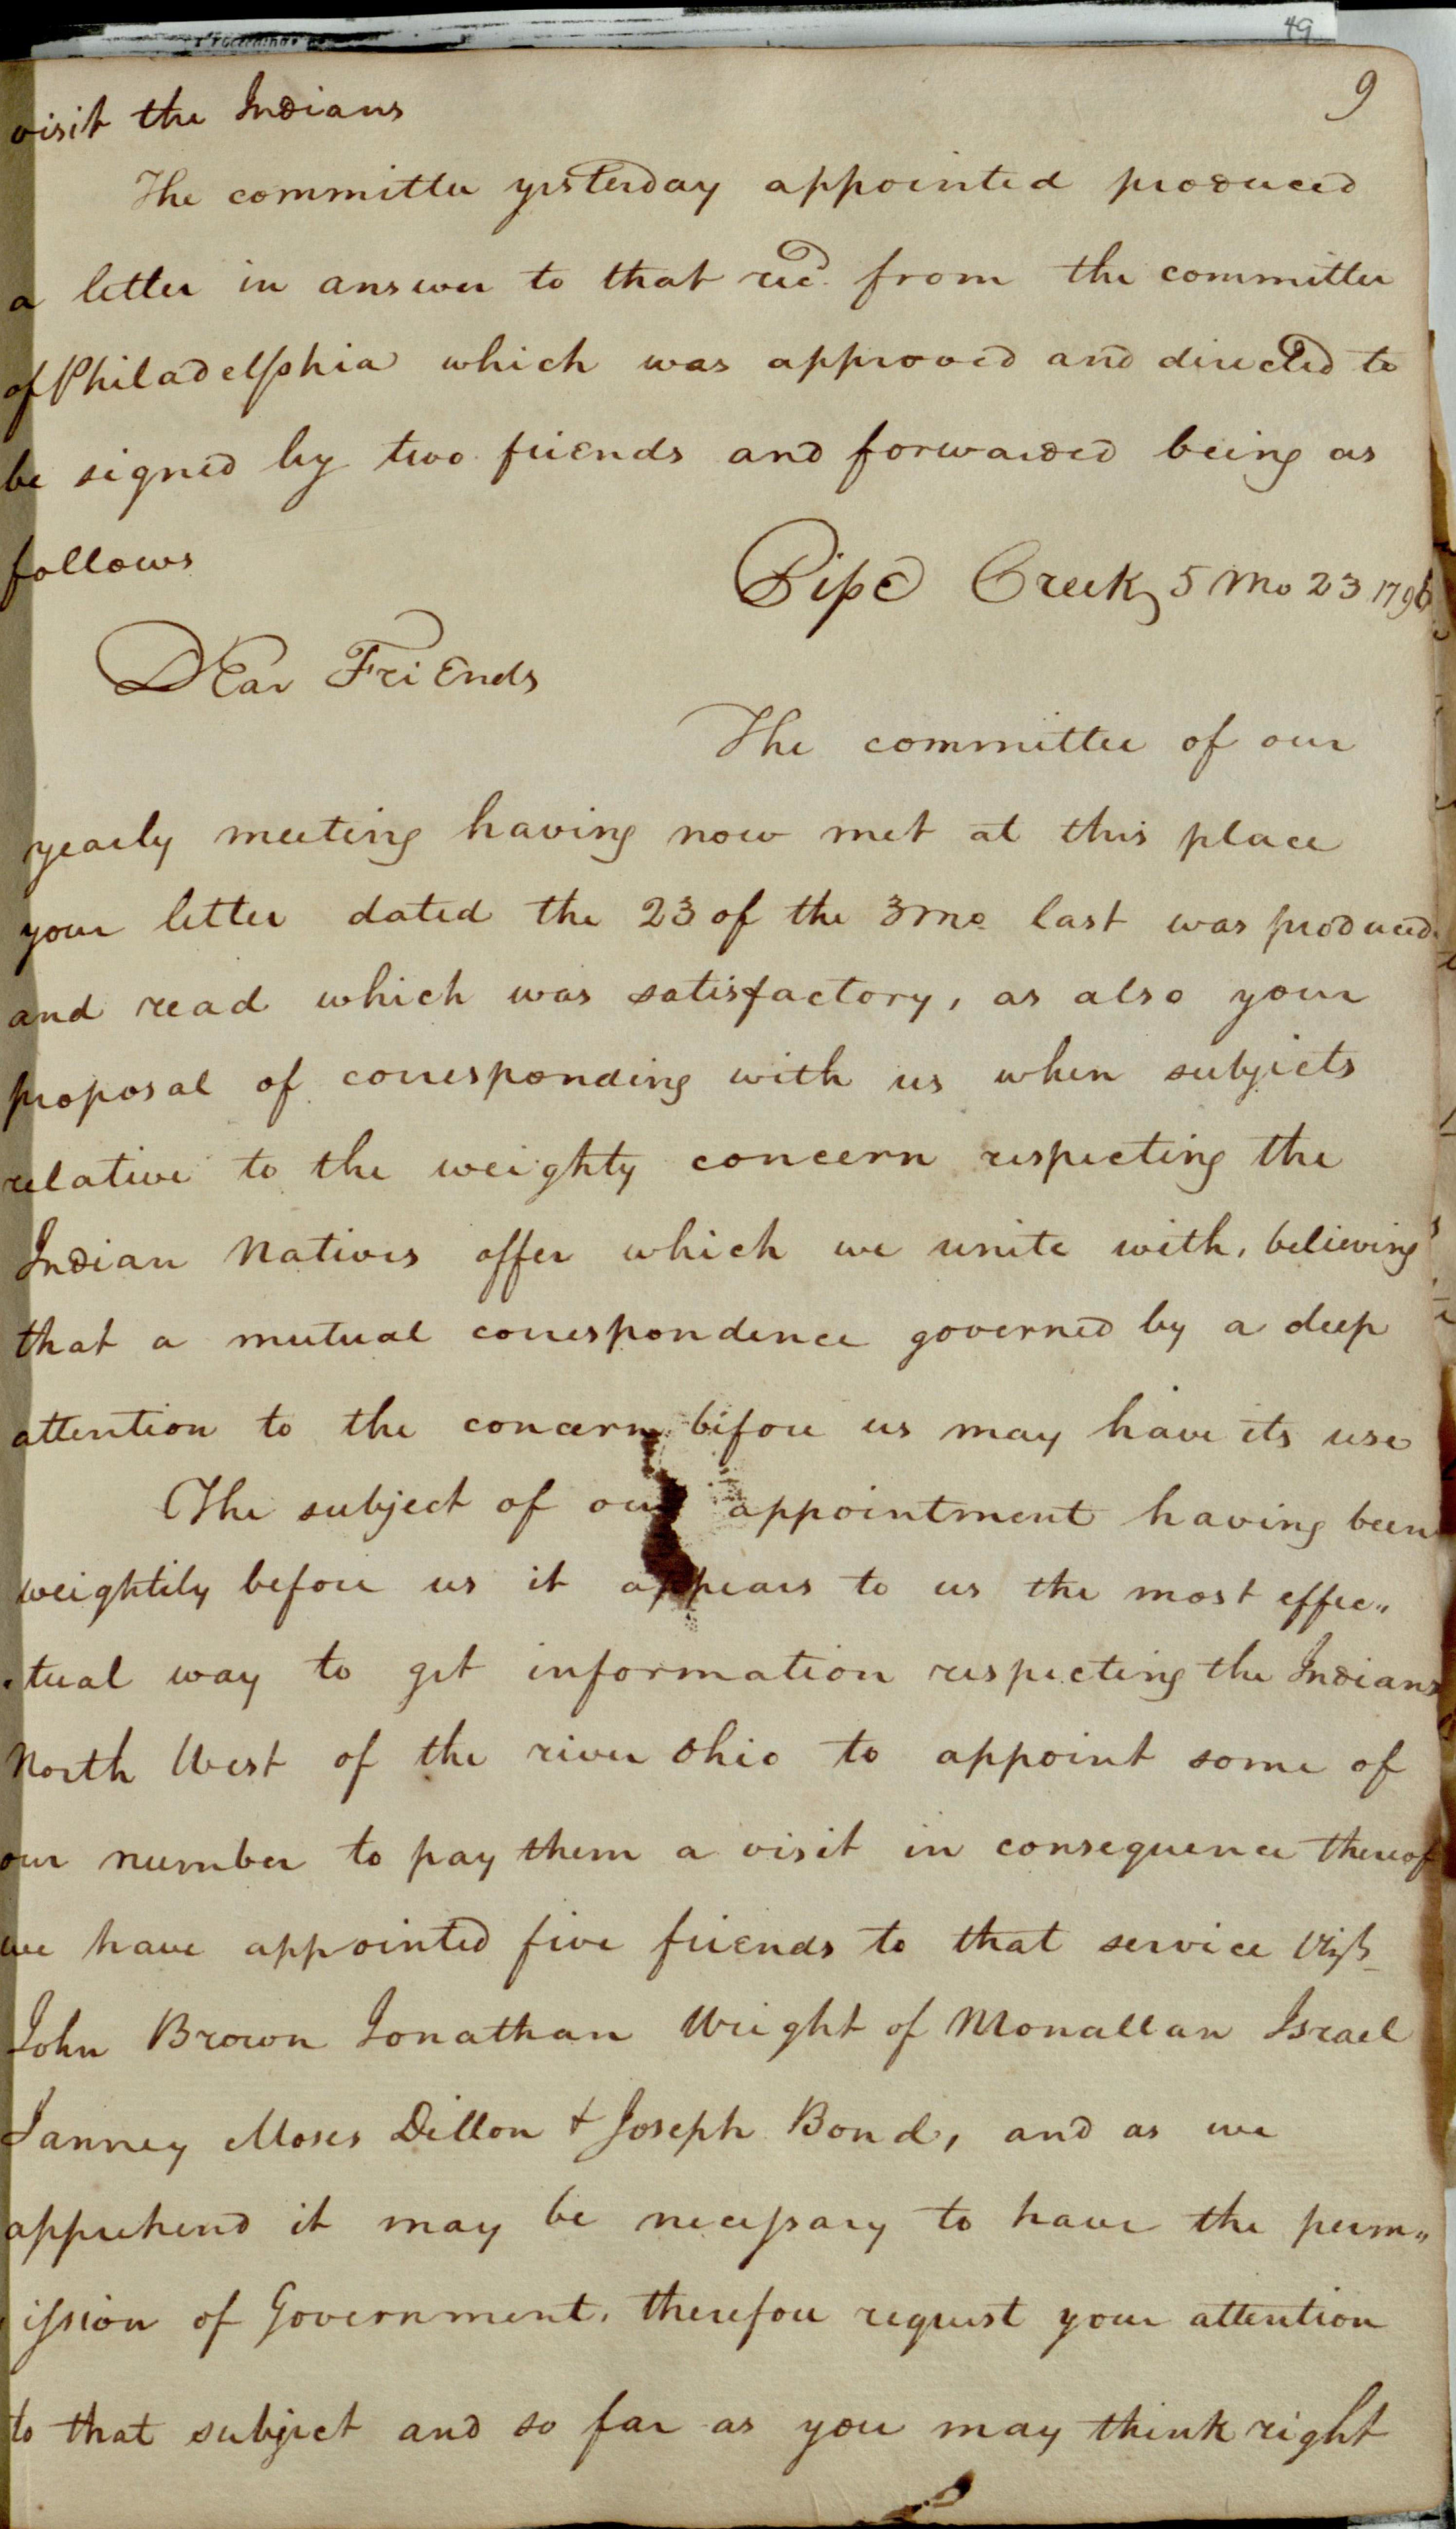 49
9
visit the Indians
The committee yesterday appointed produced
a letter in answer to that recd. from the committee
of Philadelphia which was approved and directed to
be signed by two friends and forwarded being as
follows
Pipe Creek 5 mo 23 1796
Dear Friends
The committee of our
yearly meeting having now met at this place
your letter dated the 23 of the 3 mo last was produced
and read which was satisfactory, as also your
proposal of corresponding with us when subjects
relative to the weighty concern respecting the
Indian Natives offer which we unite with, believing
that a mutual correspondence governed by a deep
attention to the concern before us may have its use
The subject of our appointment having been
weightily before us it appears to us the most effec„
„tual way to get information respecting the Indians
North West of the river Ohio to appoint some of
our number to pay them a visit in consequence thereof
we have appointed five friends to that service Viz
John Brown Jonathan Wright of Monallan Israel
Janney Moses Dillon & Joseph Bond, and as we
apprehend it may be necessary to have the perm„
ission of Government, therefore request your attention
to that subject and so far as you may think right